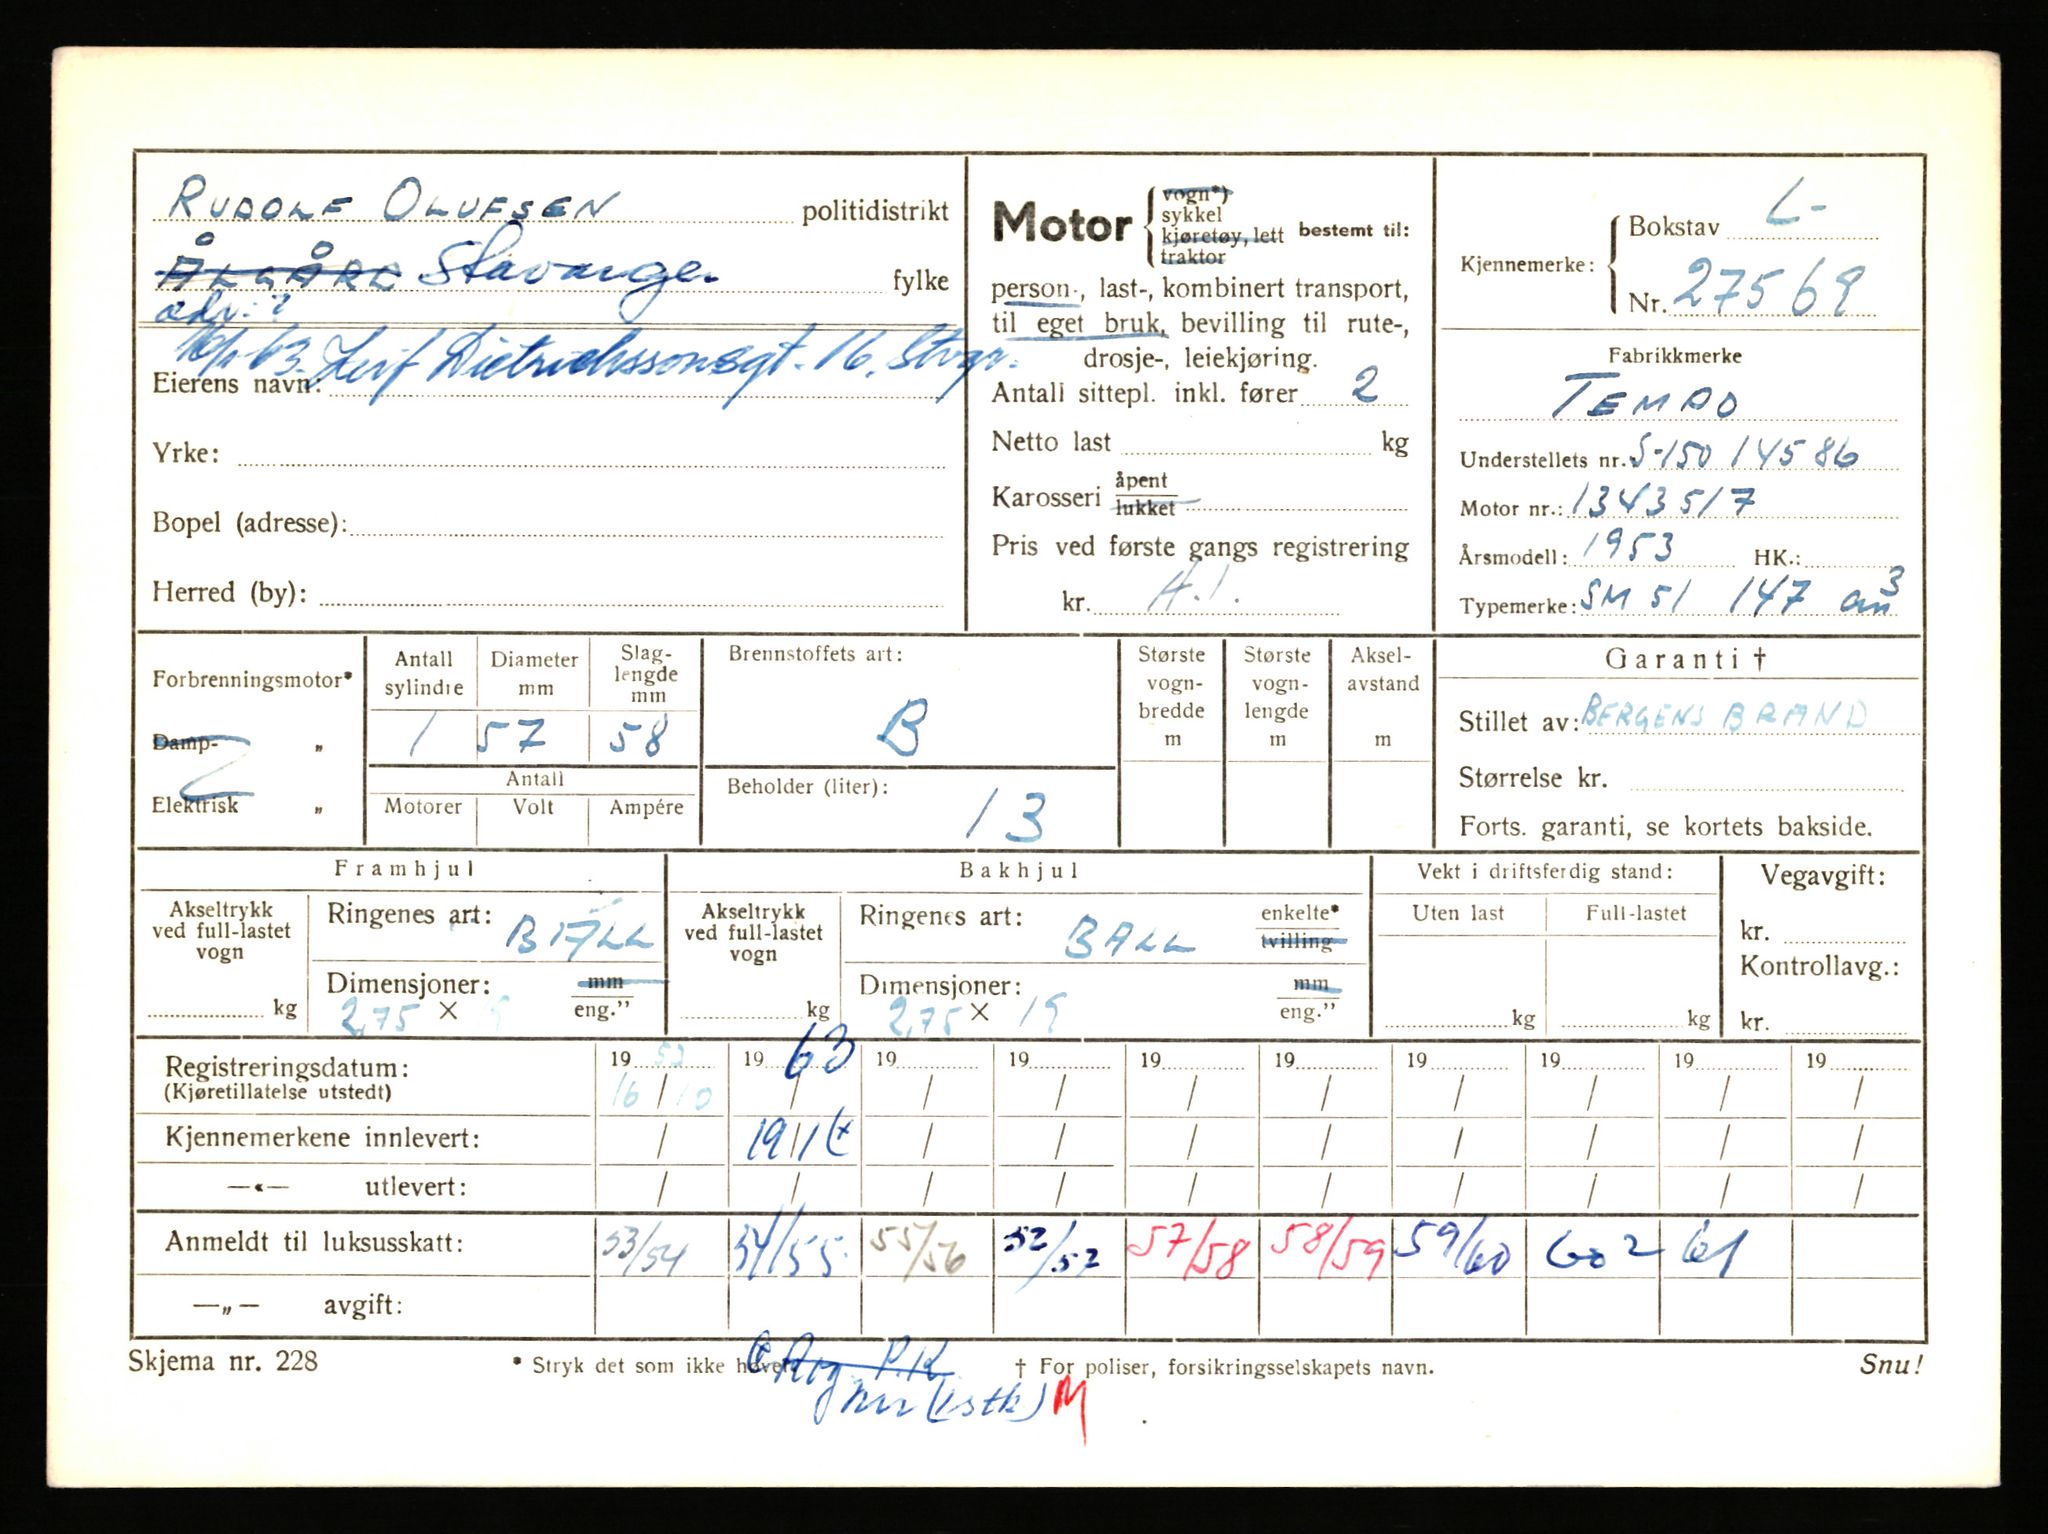 RUDOLF OLUFSEN politidistrikt
ÅLGÅRD Stavanger fylke
adr: ?
63. Leif Dietrichssonsgt. 16, Stvgr.
Eierens navn:
Yrke:
Bopel (adresse):
Herred (by):
Motor { vogn*) sykkel kjøretøy, lett traktor bestemt til:
person-, last-, kombinert transport,
til eget bruk, bevilling til rute-,
drosje-, leiekjøring.
Antall sittepl. inkl. fører 2
Netto last kg
Karosseri åpent lukket
Pris ved første gangs registrering
kr.
Kjennemerke: { Bokstav L-
Nr. 27569
Fabrikkmerke
TEMPO
Understellets nr. S-150 14586
Motor nr.: 1343517
Årsmodell: 1953 HK.:
Typemerke: SM 51 147 cm3
Forbrenningsmotor*
Damp- „
Elektrisk „
Antall sylindre Diameter mm Slag-lengde mm
1 57 58
Antall
Motorer Volt Ampére
Brennstoffets art:
B
Beholder (liter):
13
Største vogn-bredde m Største vogn-lengde m Aksel-avstand m
Garanti †
Stillet av: BERGENS BRAND
Størrelse kr.
Forts. garanti, se kortets bakside.
Framhjul
Akseltrykk ved full-lastet vogn kg
Ringenes art: BALL
Dimensjoner: mm eng.”
2,75 × 9
Bakhjul
Akseltrykk ved full-lastet vogn kg
Ringenes art: BALL enkelte* tvilling
Dimensjoner: mm eng.”
2,75 × 19
Vekt i driftsferdig stand:
Uten last Full-lastet
kg kg
Vegavgift:
kr.
Kontrollavg.:
kr.
Registreringsdatum: 19 53 19 63 19 19 19 19 19 19 19 19
(Kjøretillatelse utstedt) 16 / 10 / / / / / / / / /
Kjennemerkene innlevert: / 19/1 / / / / / / / /
—«— utlevert: / / / / / / / / / /
Anmeldt til luksusskatt: 53/54 54/55 55/56 52/52 57/58 58/59 59/60 60 2 61
—„— avgift:
Skjema nr. 228 * Stryk det som ikke høver. † For poliser, forsikringsselskapets navn. Snu!
M